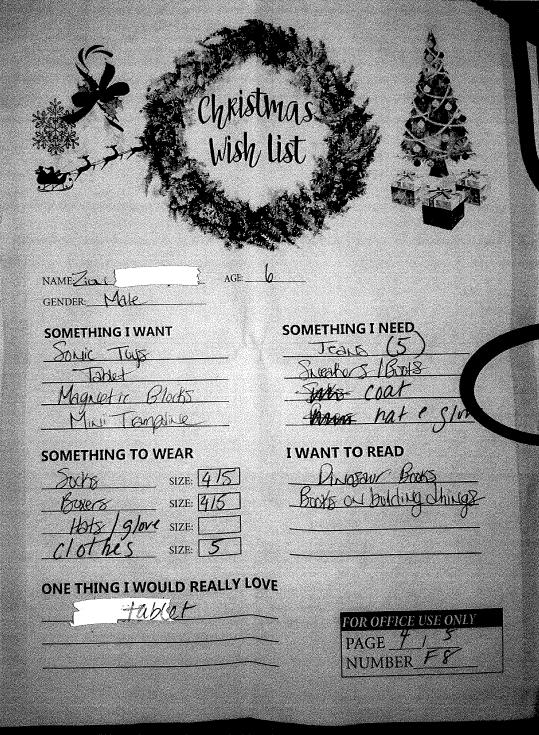 Christmas
Wish List
NAME: Zion AGE: 6
GENDER: Male
SOMETHING I WANT
Sonic Toys
Tablet
Magnetic Blocks
Mini Trampline
SOMETHING I NEED
Jeans (5)
Sneakers / Boots
coat
hat e glov
SOMETHING TO WEAR
Socks SIZE: 4/5
Boxers SIZE: 4/5
Hats / glove SIZE:
clothes SIZE: 5
I WANT TO READ
Dinosaur Books
Books on building things
ONE THING I WOULD REALLY LOVE
tablet
FOR OFFICE USE ONLY
PAGE 4 / 5
NUMBER F8